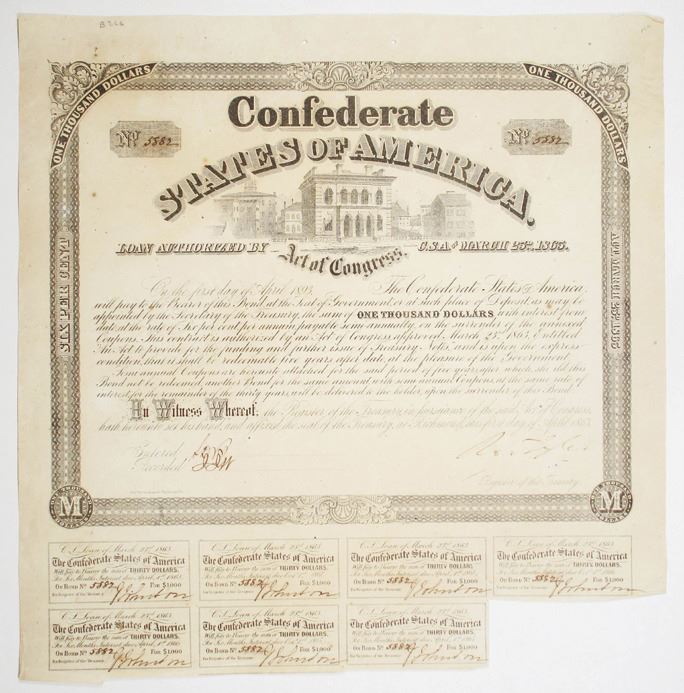 B266
ONE THOUSAND DOLLARS
ONE THOUSAND DOLLARS
Confederate
No 5882
No 5882
STATES OF AMERICA.
LOAN AUTHORIZED BY Act of Congress, C.S.A. of MARCH 23rd, 1863.
SIX PER CENT
ACT MARCH 23rd, 1863
On the first day of April 1893, The Confederate States of America
will pay to the Bearer of this Bond, at the Seat of Government, or at such place of Deposit, as may be
appointed by the Secretary of the Treasury, the sum of ONE THOUSAND DOLLARS with interest from
date, at the rate of Six per cent per annum, payable semi-annually, on the surrender of the annexed
Coupons. This contract is authorized by an Act of Congress approved March 23rd, 1863, Entitled
An Act to provide for the funding and further issue of Treasury Notes, and is upon the express
condition, that
redeemable five years after date, at the pleasure of the Government.
Semi-annual Coupons are hereunto attached for the said period of five years, after which, should this
Bond not be redeemed, another Bond for the same amount with semi-annual Coupons, at the same rate of
interest, for the remainder of the thirty years, will be delivered to the holder upon the surrender of this Bond.
In Witness Whereof, the Register of the Treasury, in pursuance of the said Act of Congress,
hath hereunto set his hand, and affixed the seat of the Treasury, at Richmond, this day of April 1863
Entered
Recorded
Register of the Treasury
M
M
C.S. Loan of March 23rd, 1863
The Confederate States of America
Will pay to Bearer the sum of THIRTY DOLLARS.
For Six Months Interest due April 1st
ON BOND No 5882 FOR $1,000
For Register of the Treasury
J Johnston
C.S. Loan of March 23rd, 1863
The Confederate States of America
Will pay to Bearer the sum of THIRTY DOLLARS.
For Six Months Interest due
ON BOND No 5882 FOR $1,000
For Register of the Treasury
J Johnston
C.S. Loan of March 23rd, 1863
The Confederate States of America
Will pay to Bearer the sum of THIRTY DOLLARS.
For Six Months Interest due
ON BOND No 5882 FOR $1,000
For Register of the Treasury
J Johnston
C.S. Loan of March 23rd, 1863
The Confederate States of America
Will pay to Bearer the sum of THIRTY DOLLARS.
For Six Months Interest due
ON BOND No 5882 FOR $1,000
For Register of the Treasury
J Johnston
C.S. Loan of March 23rd, 1863
The Confederate States of America
Will pay to Bearer the sum of THIRTY DOLLARS.
For Six Months Interest due April 1st
ON BOND No 5882 FOR $1,000
For Register of the Treasury
J Johnston
C.S. Loan of March 23rd, 1863
The Confederate States of America
Will pay to Bearer the sum of THIRTY DOLLARS.
For Six Months Interest due
ON BOND No 5882 FOR $1,000
For Register of the Treasury
J Johnston
C.S. Loan of March 23rd, 1863
The Confederate States of America
Will pay to Bearer the sum of THIRTY DOLLARS.
For Six Months Interest due April 1st
ON BOND No 5882 FOR $1,000
For Register of the Treasury
J Johnston